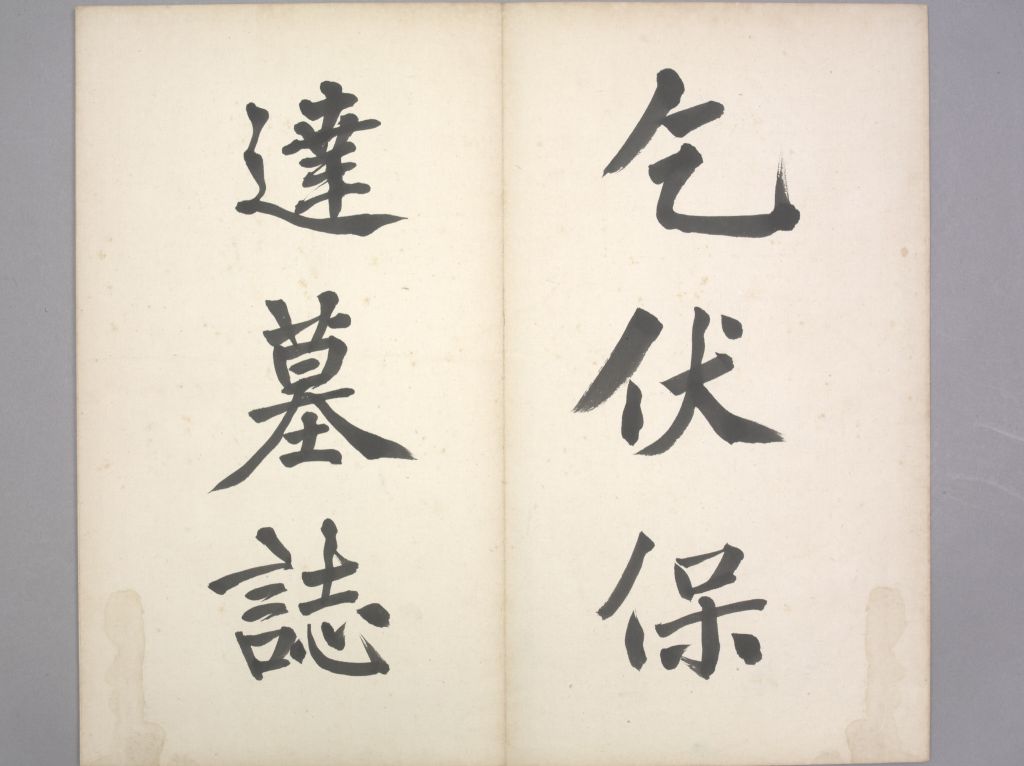 乞伏保
達墓誌